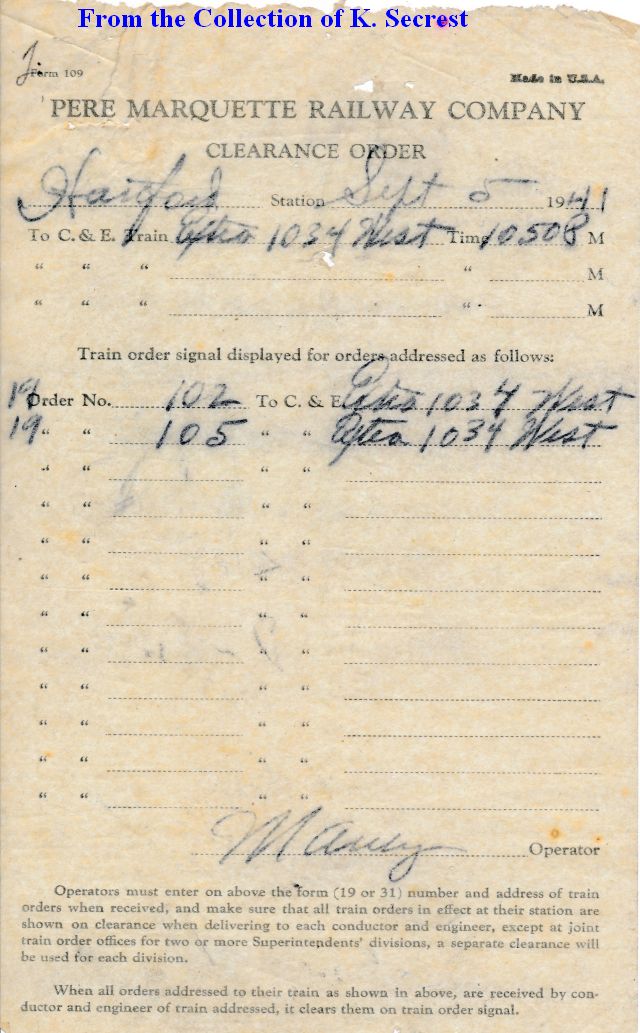 From the Collection of K. Secrest
Form 109
Made in U.S.A.
PERE MARQUETTE RAILWAY COMPANY
CLEARANCE ORDER
Hartford Station Sept 5 1941
To C. & E. Train Extra 1034 West Time 1050P M
“ “ “ “ M
“ “ “ “ M
Train order signal displayed for orders addressed as follows:
19 Order No. 102 To C. & E. Extra 1034 West
19 “ “ 105 “ “ Extra 1034 West
“ “ “ “
“ “ “ “
“ “ “ “
“ “ “ “
“ “ “ “
“ “ “ “
“ “ “ “
“ “ “ “
“ “ “ “
“ “ “ “
Operator
Operators must enter on above the form (19 or 31) number and address of train
orders when received, and make sure that all train orders in effect at their station are
shown on clearance when delivering to each conductor and engineer, except at joint
train order offices for two or more Superintendents' divisions, a separate clearance will
be used for each division.
When all orders addressed to their train as shown in above, are received by con-
ductor and engineer of train addressed, it clears them on train order signal.